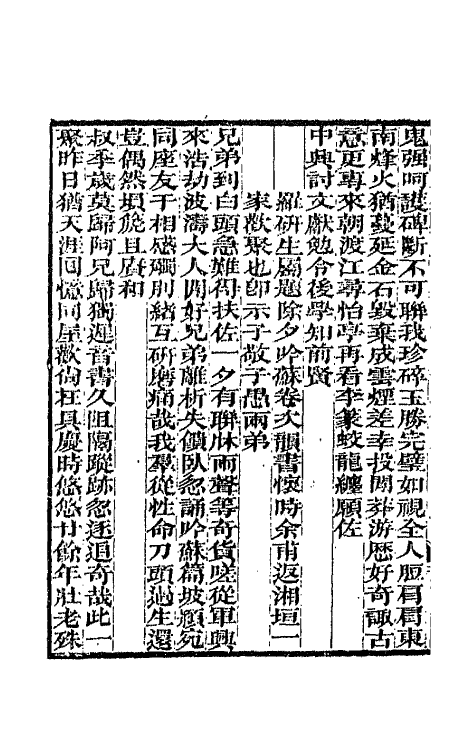 鬼強呵護碑斷不可聯我珍碎玉勝完璧如視全人脰肩肩東
南烽火猶蔓延金石毀棄成雲煙差幸投閒葬游歷好奇諏古
意更專來朝渡江尋怡亭再看李篆蛟龍纏願佐
中興討文獻勉令後學知前賢
羅研生屬題除夕吟蘇卷次韻書懷時余甫返湘垣一
家歡聚也卽示子敬子愚兩弟
兄弟到白頭急難得扶佐一夕有聯牀雨聲等奇貨嗟從軍興
來浩劫波濤大人開好兄弟離析失饋臥忽誦吟蘇篇坡頴宛
同座友于相感礪刖緒互研磨痛哉我羣從性命刀頭過生還
豈偶然埙箎且賡和
叔季歲莫歸阿兄歸獨遲音書久阻隔蹤跡忽逐追奇哉此一
聚昨日猶天涯回憶同屋歡尙在具慶時悠悠廿餘年壯老殊